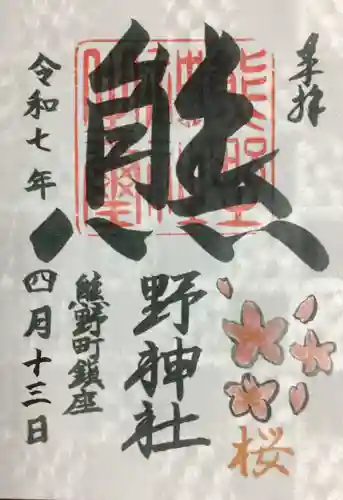 奉拝
熊野神社
桜
熊野町鎮座
令和七年四月十三日